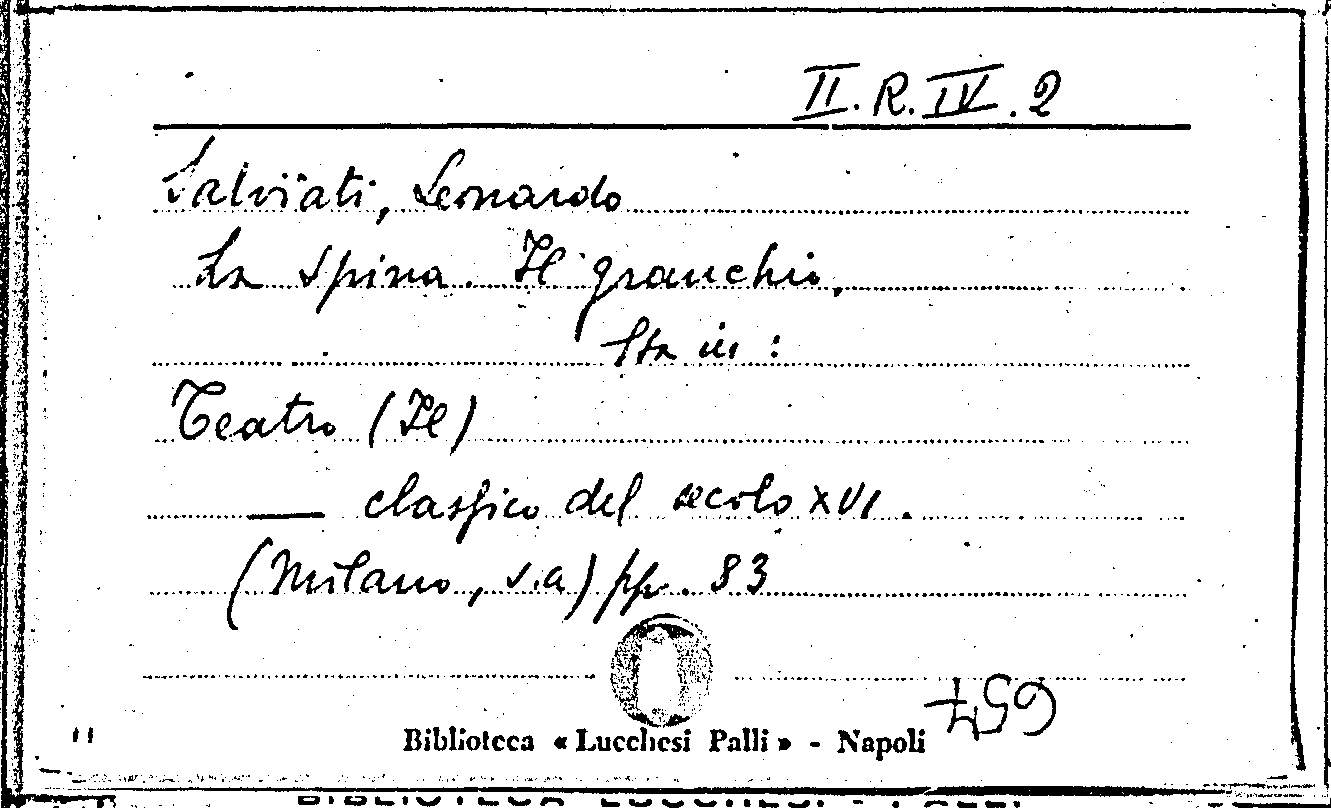 II. R. IV. 2
Salviati, Leonardo
La Spina. Il granchio,
Sta in :
Teatro (Il)
— classico del secolo XVI.
(Milano, s.a) pp. 83
Biblioteca « Lucchesi Palli » - Napoli